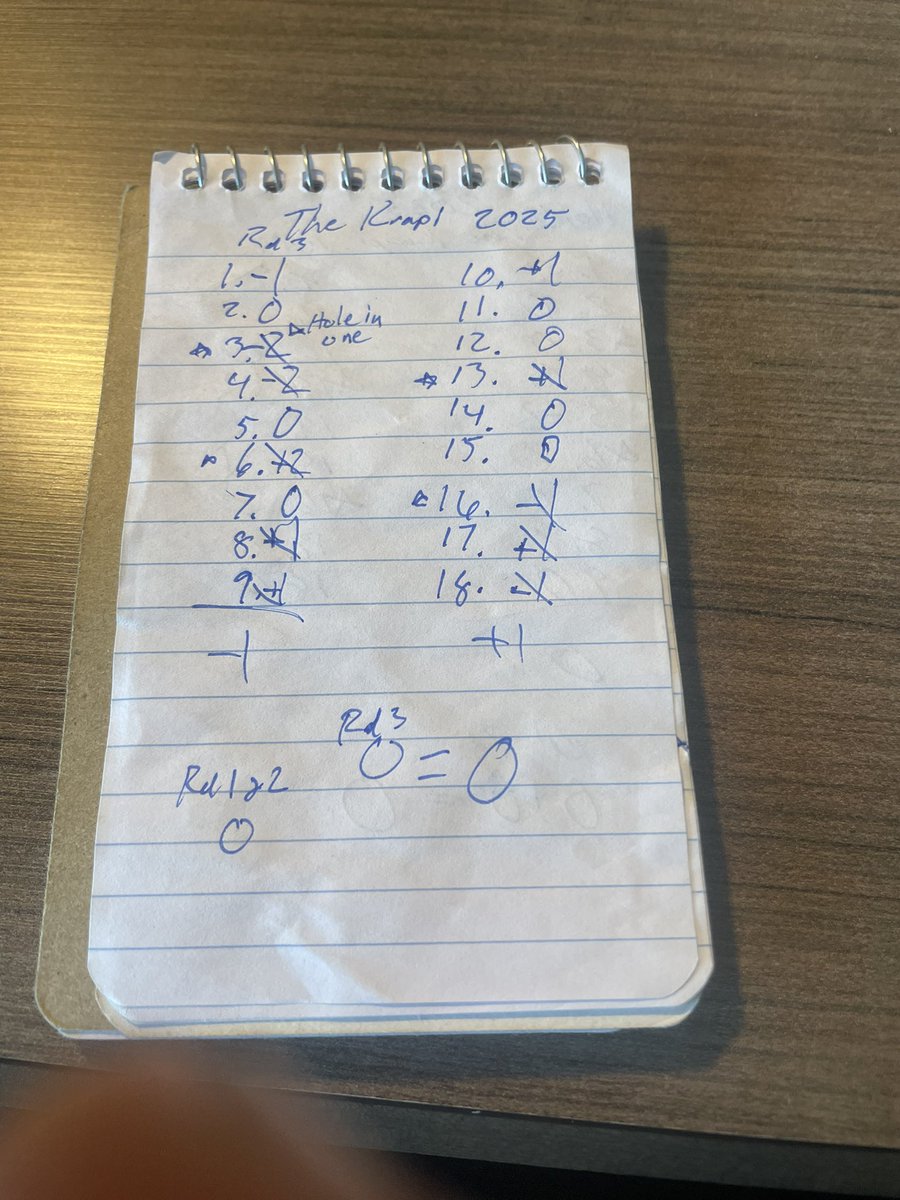 The Krapl 2025
Rd 3
1. -1
2. 0
Hole in
one
3. -2
4. -2
5. 0
6. +2
7. 0
8. +1
9. +1
-1
10. +1
11. 0
12. 0
13. +1
14. 0
15. 0
16. -1
17. +1
18. -1
+1
Rd 3
0 = 0
Rd 1 & 2
0